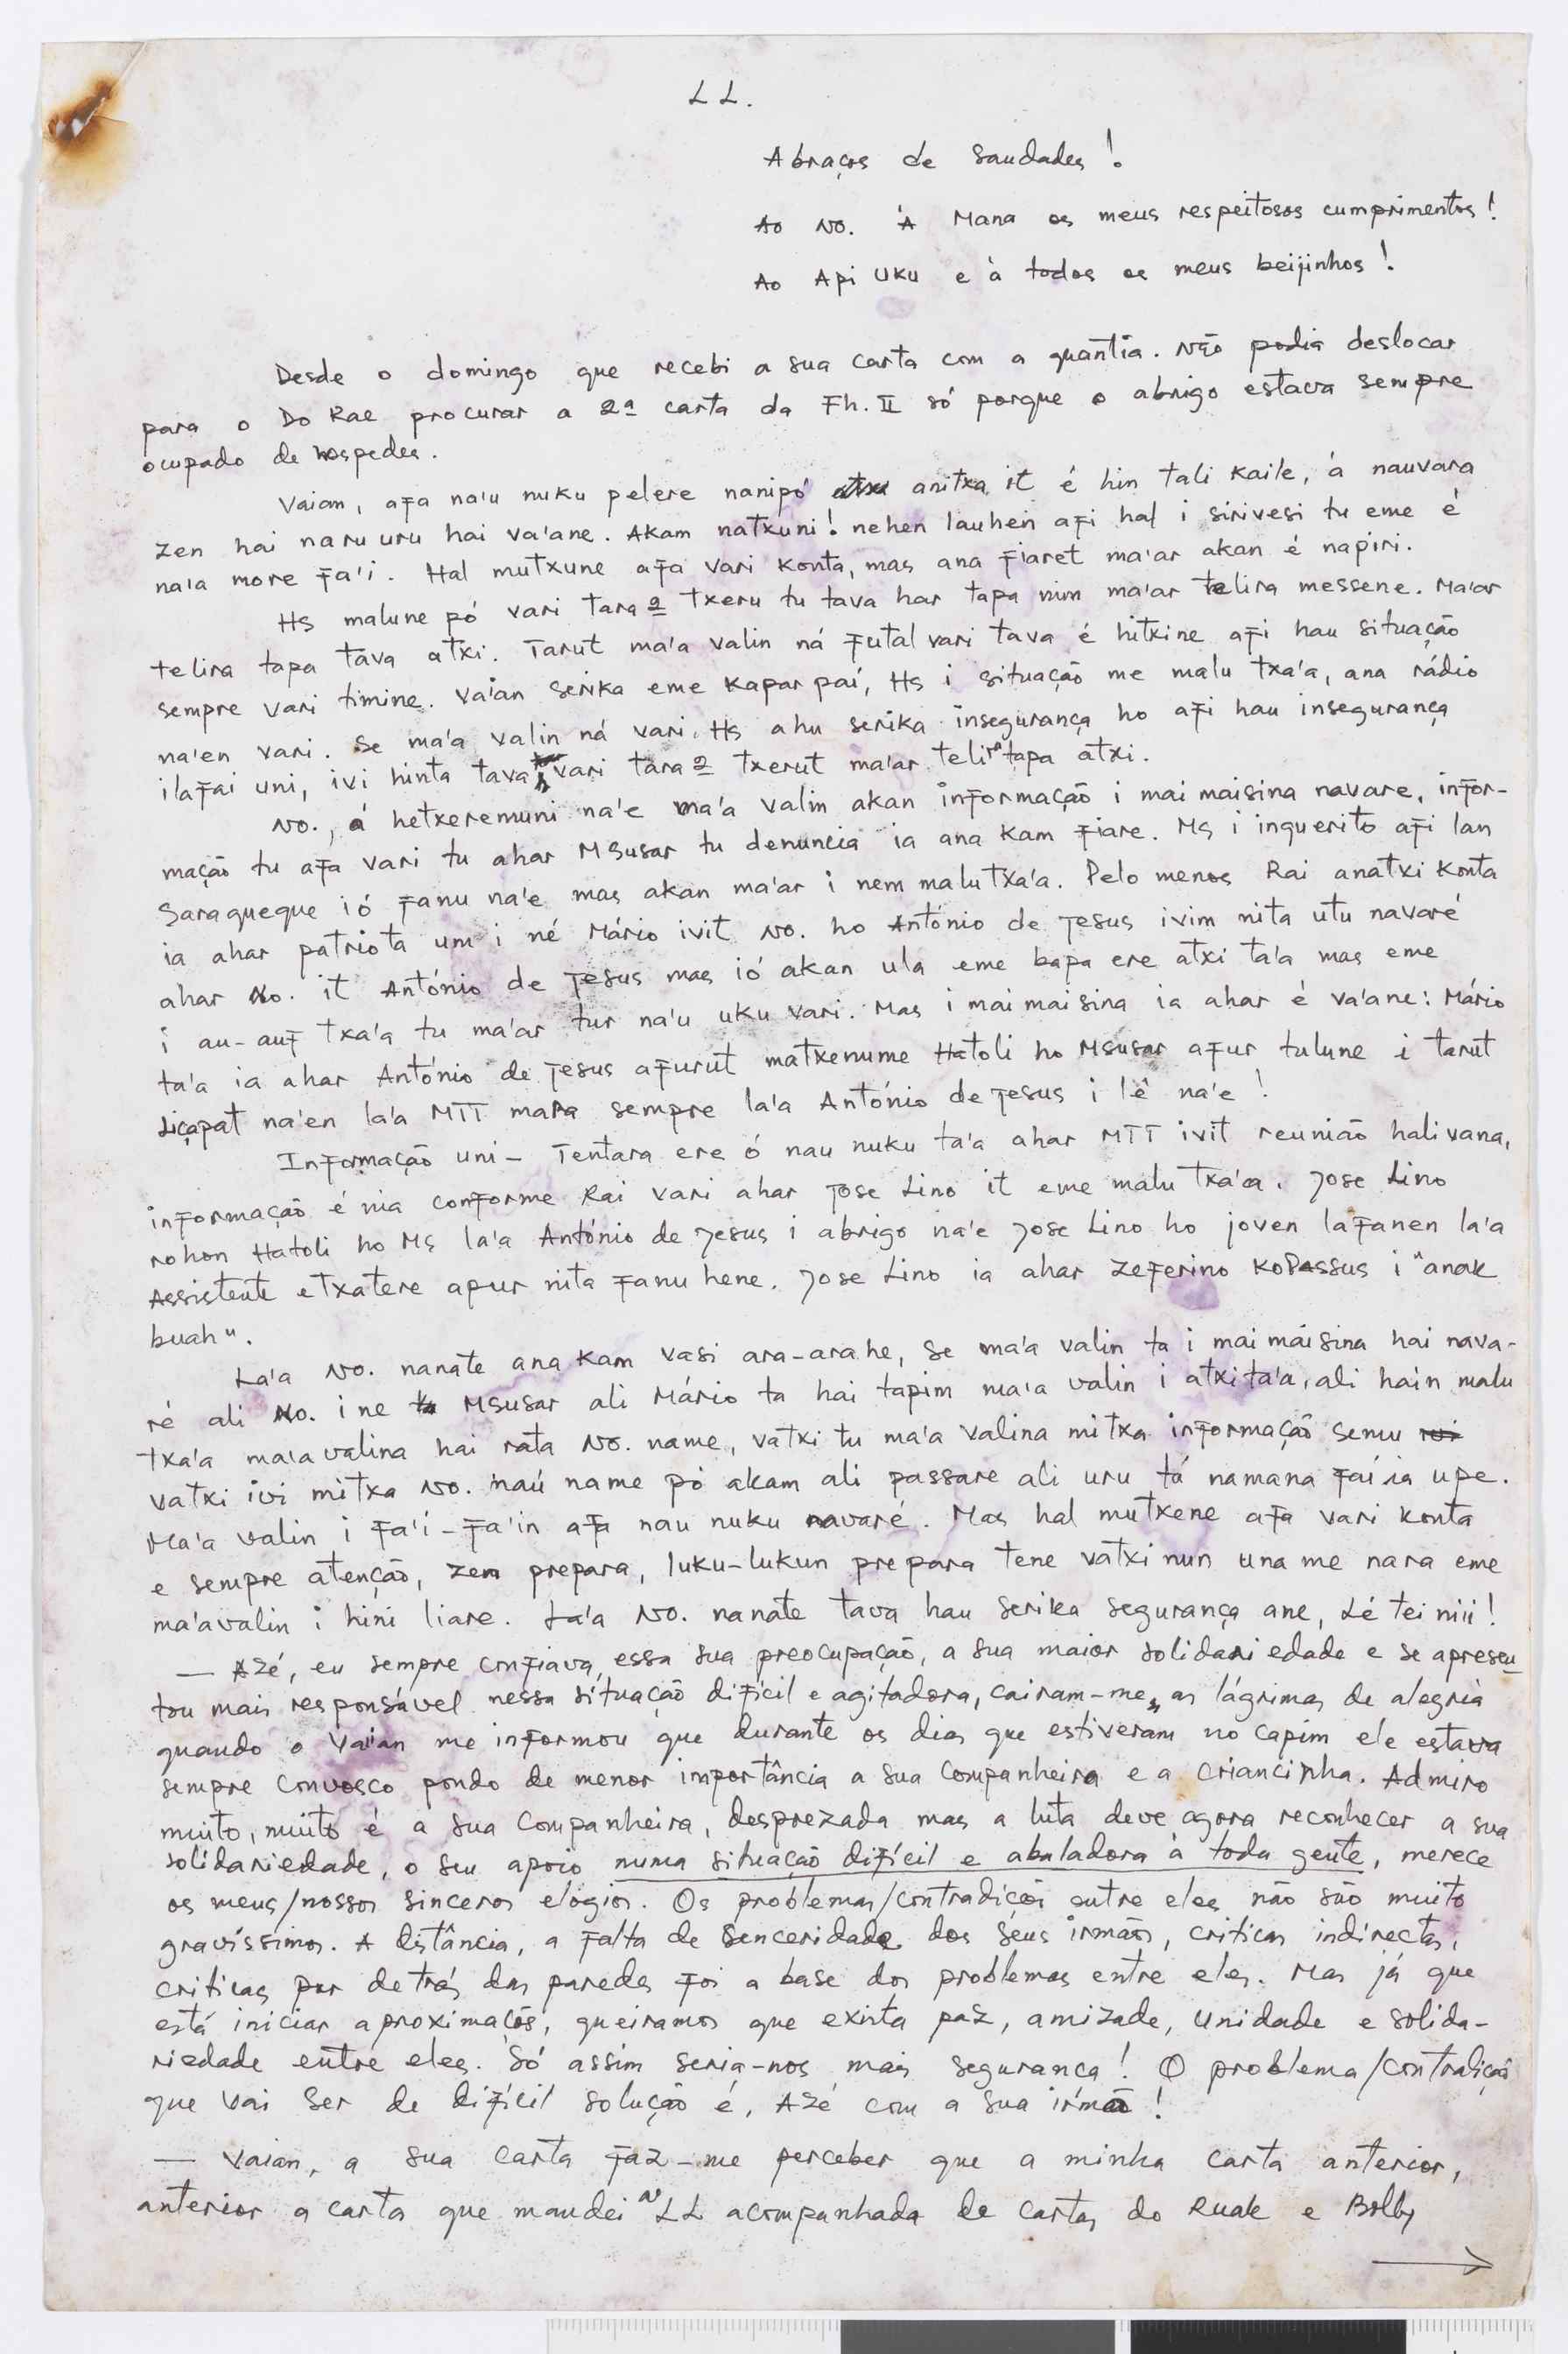 LL.
Abraços de Saudades!
Ao No. À Mana os meus respeitosos cumprimentos!
Ao Api Uku e à todos os meus beijinhos!
Desde o domingo que recebi a sua carta com a quantia. Não podia deslocar
para o Do Rae procurar a 2ª carta da Fh. II só porque o abrigo estava sempre
ocupado de hospedes.
Vaian, afa na'u nuku pelere nanipó anitxa it é hin tali kaile, á nauvara
zen hai naru uru hai va'ane. Akam natxuni! nehen lauhen afi hal i sirivesi tu eme é
na'a more fa'i. Hal mutxune afa vari konta, mas ana fiaret ma'ar akan é napiri.
Hs malune pó vari tara 2 txeru tu tava har tapa nim ma'ar telira messene. Ma'ar
telira tapa tava atxi. Tarut ma'a valin ná futal vari tava é hitxine afi hau situação
sempre vari timine. Vaian serika eme kapar paí, Hs i situação me malu txa'a, ana rádio
na'en vari. Se ma'a valin ná vari. Hs ahu serika insegurança ho afi hau insegurança
ilafai uni, ivi hinta tava, vari tara 2 txerut ma'ar telira tapa atxi.
No., á hetxeremuni na'e ma'a valin akan informação i mai maisina navare, infor-
mação tu afa vari tu ahar Msusar tu denuncia ia ana kam fiare. Ms i inquerito afi lan
Saraqueque ió fanu na'e mas akan ma'ar i nem malutxa'a. Pelo menos Rai anatxi konta
ia ahar patriota um i né Mário ivit No. ho António de Jesus ivim nita utu navaré
ahar No. it António de Jesus mas ió akan ula eme bapa ere atxi ta'a mas eme
i au-auf txa'a tu ma'ar tur na'u uku vari. Mas i mai maisina ia ahar é va'ane: Mário
ta'a ia ahar António de Jesus afurut matxenume Hatoli ho Msusar afur tulune i tarut
Liçapat na'en la'a MTT mara sempre la'a António de Jesus i lê na'e!
Informação uni - Tentara ere ó nau nuku ta'a ahar MTT ivit reunião halivana,
informação é nia conforme Rai vari ahar Jose Lino it eme malu txa'a. Jose Lino
rohon Hatoli ho Ms la'a António de Jesus i abrigo na'e Jose Lino ho joven lafanen la'a
Assistente etxatere apur nita fanu hene. Jose Lino ia ahar Zeferino Kopassus i "anak
buah".
La'a No. nanate ana kam vasi ara-arahe, se ma'a valin ta i mai maisina hai nava-
ré ali No. ine Msusar ali Mário ta hai tapim ma'a valin i atxita'a, ali hain malu
txa'a ma'avalina hai rata No. name, vatxi tu ma'a valina mitxa informação semu
vatxi ivi mitxa No. naú name pó akam ali passare ali uru tá namana faí ia upe.
Ma'a valin i fa'i-fa'in afa nau nuku navaré. Mas hal mutxene afa vari konta
e sempre atenção, zen prepara, luku-lukun prepara tene vatxi nun una me nara eme
ma'avalin i hini liare. La'a No. nanate tava hau serika segurança ane, Lé tei nii!
— Azé, eu sempre confiava, essa sua preocupação, a sua maior solidariedade e se apresen-
tou mais responsável nessa situação difícil e agitadora, cairam-me, as lágrimas de alegria
quando o Vaian me informou que durante os dias que estiveram no capim ele estava
sempre convosco pondo de menor importância a sua companheira e a criancinha. Admiro
muito, muito é a sua companheira, desprezada mas a luta deve agora reconhecer a sua
solidariedade, o seu apoio numa situação difícil e abaladora à toda gente, merece
os meus/nossos sinceros elogios. Os problemas/contradições entre eles não são muito
gravíssimos. A distância, a falta de senceridade dos seus irmãos, criticas indirectas,
criticas por detrás das paredes foi a base dos problemas entre eles. Mas já que
está iniciar aproximações, queiramos que exista paz, amizade, unidade e solida-
riedade entre eles. Só assim seria-nos mais segurança! O problema/contradição
que vai ser de difícil solução é, Azé com a sua irmã!
— Vaian, a sua carta faz-me perceber que a minha carta anterior,
anterior a carta que mandei LL acompanhada de cartas do Ruak e Bolby